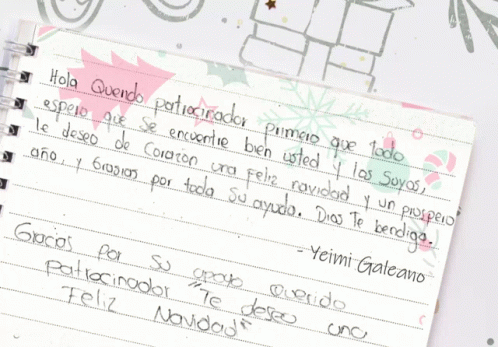 Hola Querido patrocinador primero que todo
espero que se encuentre bien usted y los suyos,
le deseo de corazón una feliz navidad y un prospero
año, y Gracias por toda su ayuda. Dios Te bendiga.
- Yeimi Galeano
Gracias por su apoyo querido
patrocinador "Te deseo una
Feliz Navidad"